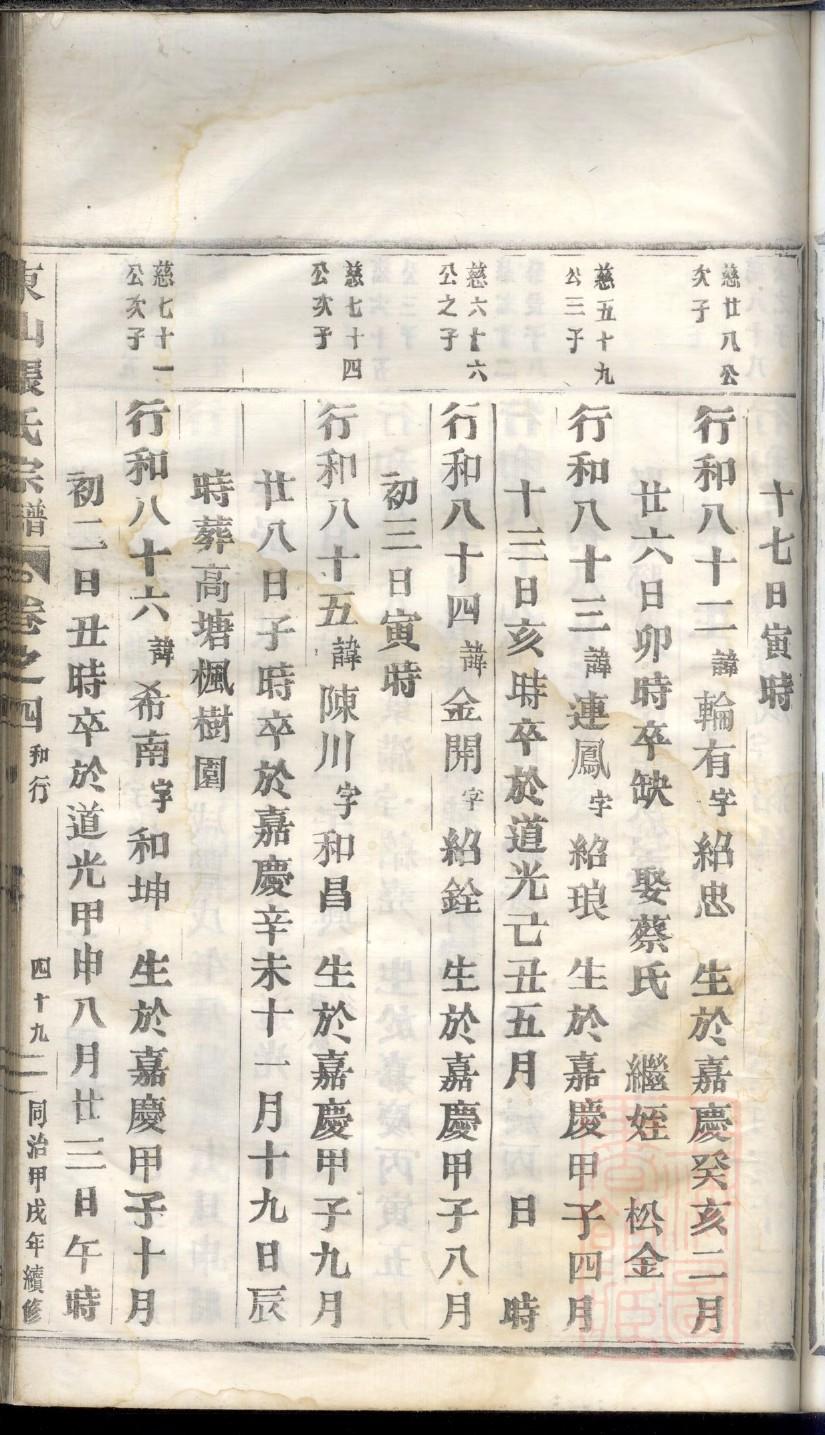 十七日寅時
慈廿八公
次子
行和八十二諱輪有字紹忠 生於嘉慶癸亥二月
廿六日卯時卒缺娶蔡氏 繼姪 松金
慈五十九
公三子
行和八十三諱連鳳字紹琅 生於嘉慶甲子四月
十三日亥時卒於道光己丑五月 日 時
慈六十六
公之子
行和八十四諱金開字紹銓 生於嘉慶甲子八月
初三日寅時
慈七十四
公次子
行和八十五諱陳川字和昌 生於嘉慶甲子九月
廿八日子時卒於嘉慶辛未十一月十九日辰
時葬高塘楓樹園
慈七十一
公次子
行和八十六諱希南字和坤 生於嘉慶甲子十月
初二日丑時卒於道光甲申八月廿三日午時
東山張氏宗譜 卷之四 和行 四十九 同治甲戌年續修